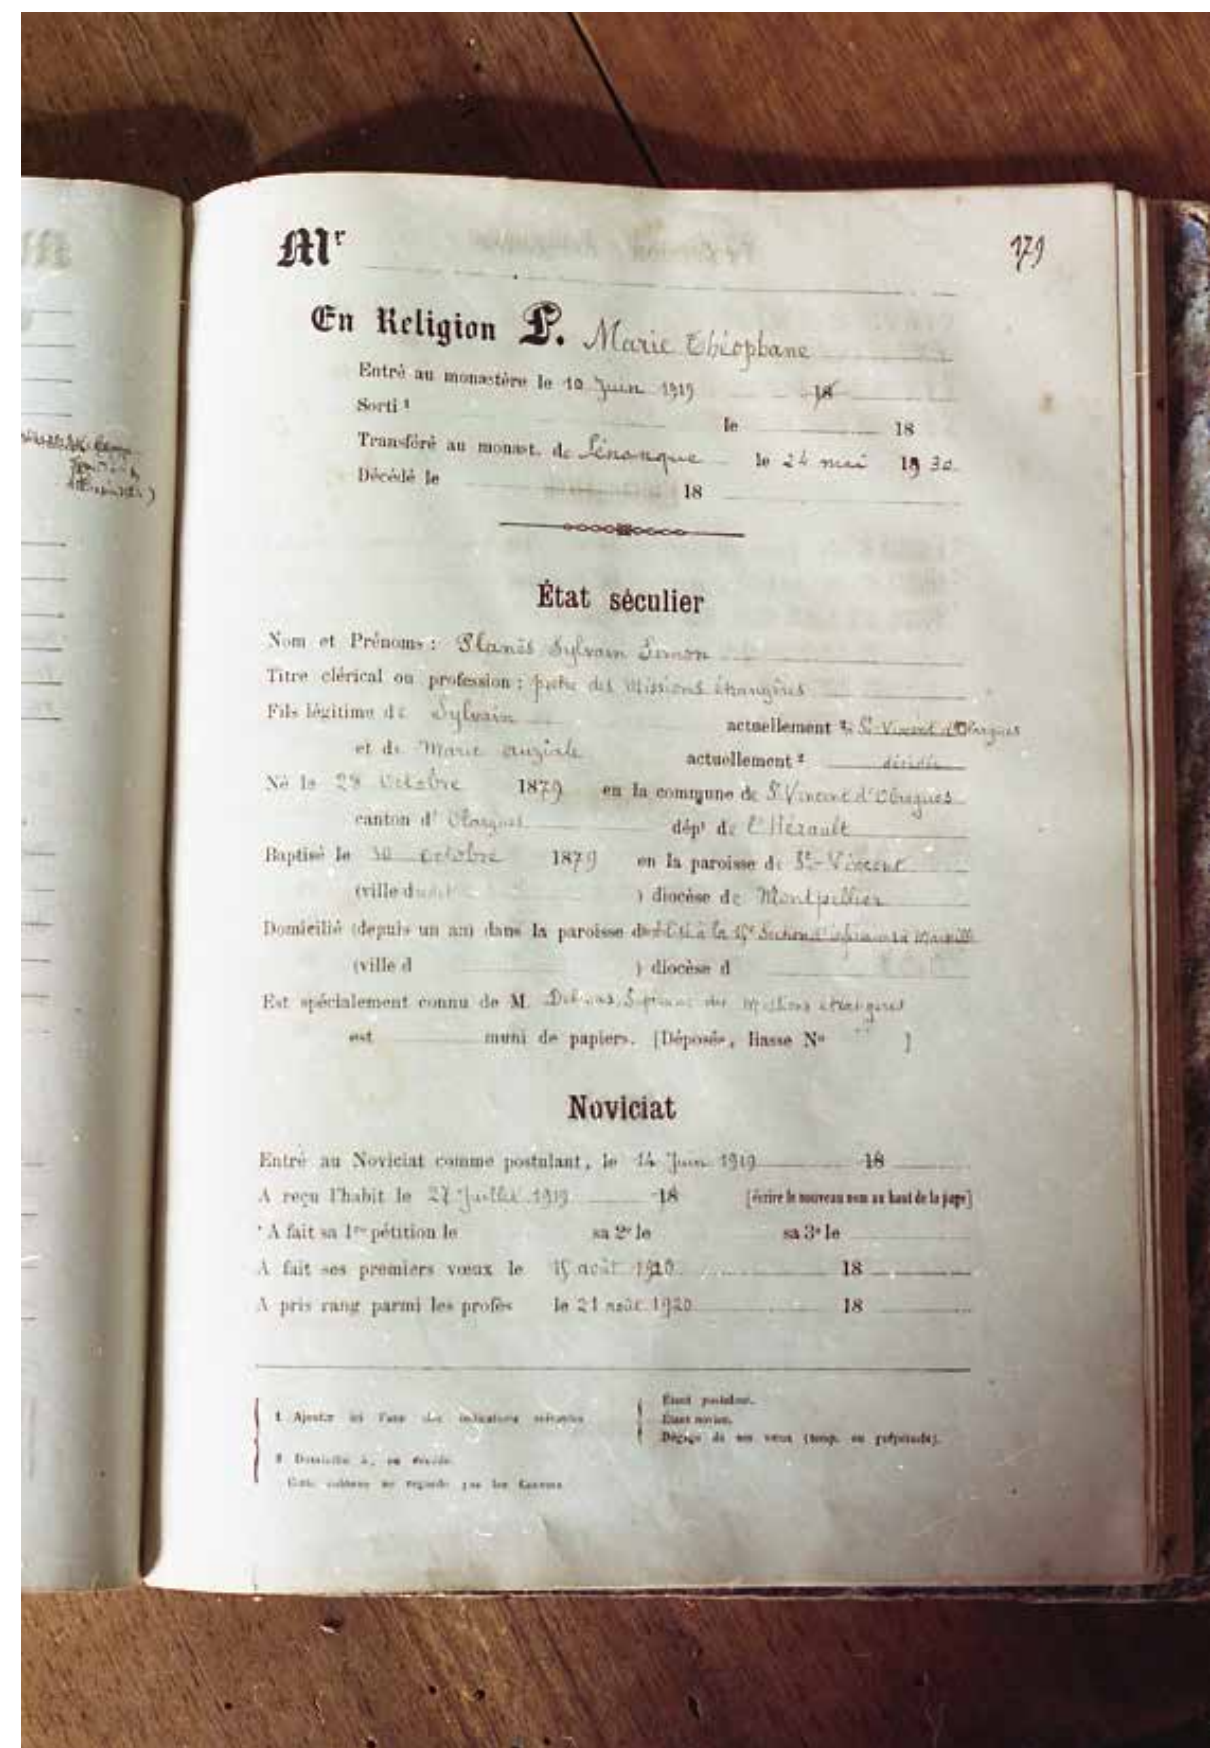 Mr
179
En Religion P. Marie Théophane
Entré au monastère le 10 Juin 1919 18
Sorti ¹ le 18
Transféré au monast. de Sénanque le 24 mai 1930
Décédé le 18
État séculier
Nom et Prénoms : Planès Sylvain Simon
Titre clérical ou profession : prêtre des Missions étrangères
Fils légitime de Sylvain actuellement ² à St Vincent d'Olargues
et de Marie auziale actuellement ² décédée
Né le 28 Octobre 1879 en la commune de St Vincent d'Olargues
canton d' Olargues dépt de l'Hérault
Baptisé le 30 octobre 1879 en la paroisse de St-Vincent
(ville d ) diocèse de Montpellier
Domicilié (depuis un an) dans la paroisse d à la 15e Section d'infirmiers à Marseille
(ville d ) diocèse d
Est spécialement connu de M. des Missions étrangères
est muni de papiers. [Déposés, liasse No ]
Noviciat
Entré au Noviciat comme postulant, le 14 Juin 1919 18
A reçu l'habit le 27 Juillet 1919 18 [écrire le nouveau nom au haut de la page]
* A fait sa 1re pétition le sa 2e le sa 3e le
A fait ses premiers vœux le 15 août 1920 18
A pris rang parmi les profès le 21 août 1920 18
1 Ajouter ici l'une des indications suivantes
Étant postulant.
Étant novice.
Dégagé de ses vœux (temp. ou perpétuels).
2 Domicilié à, ou décédé.
Cette colonne ne regarde pas les Convers